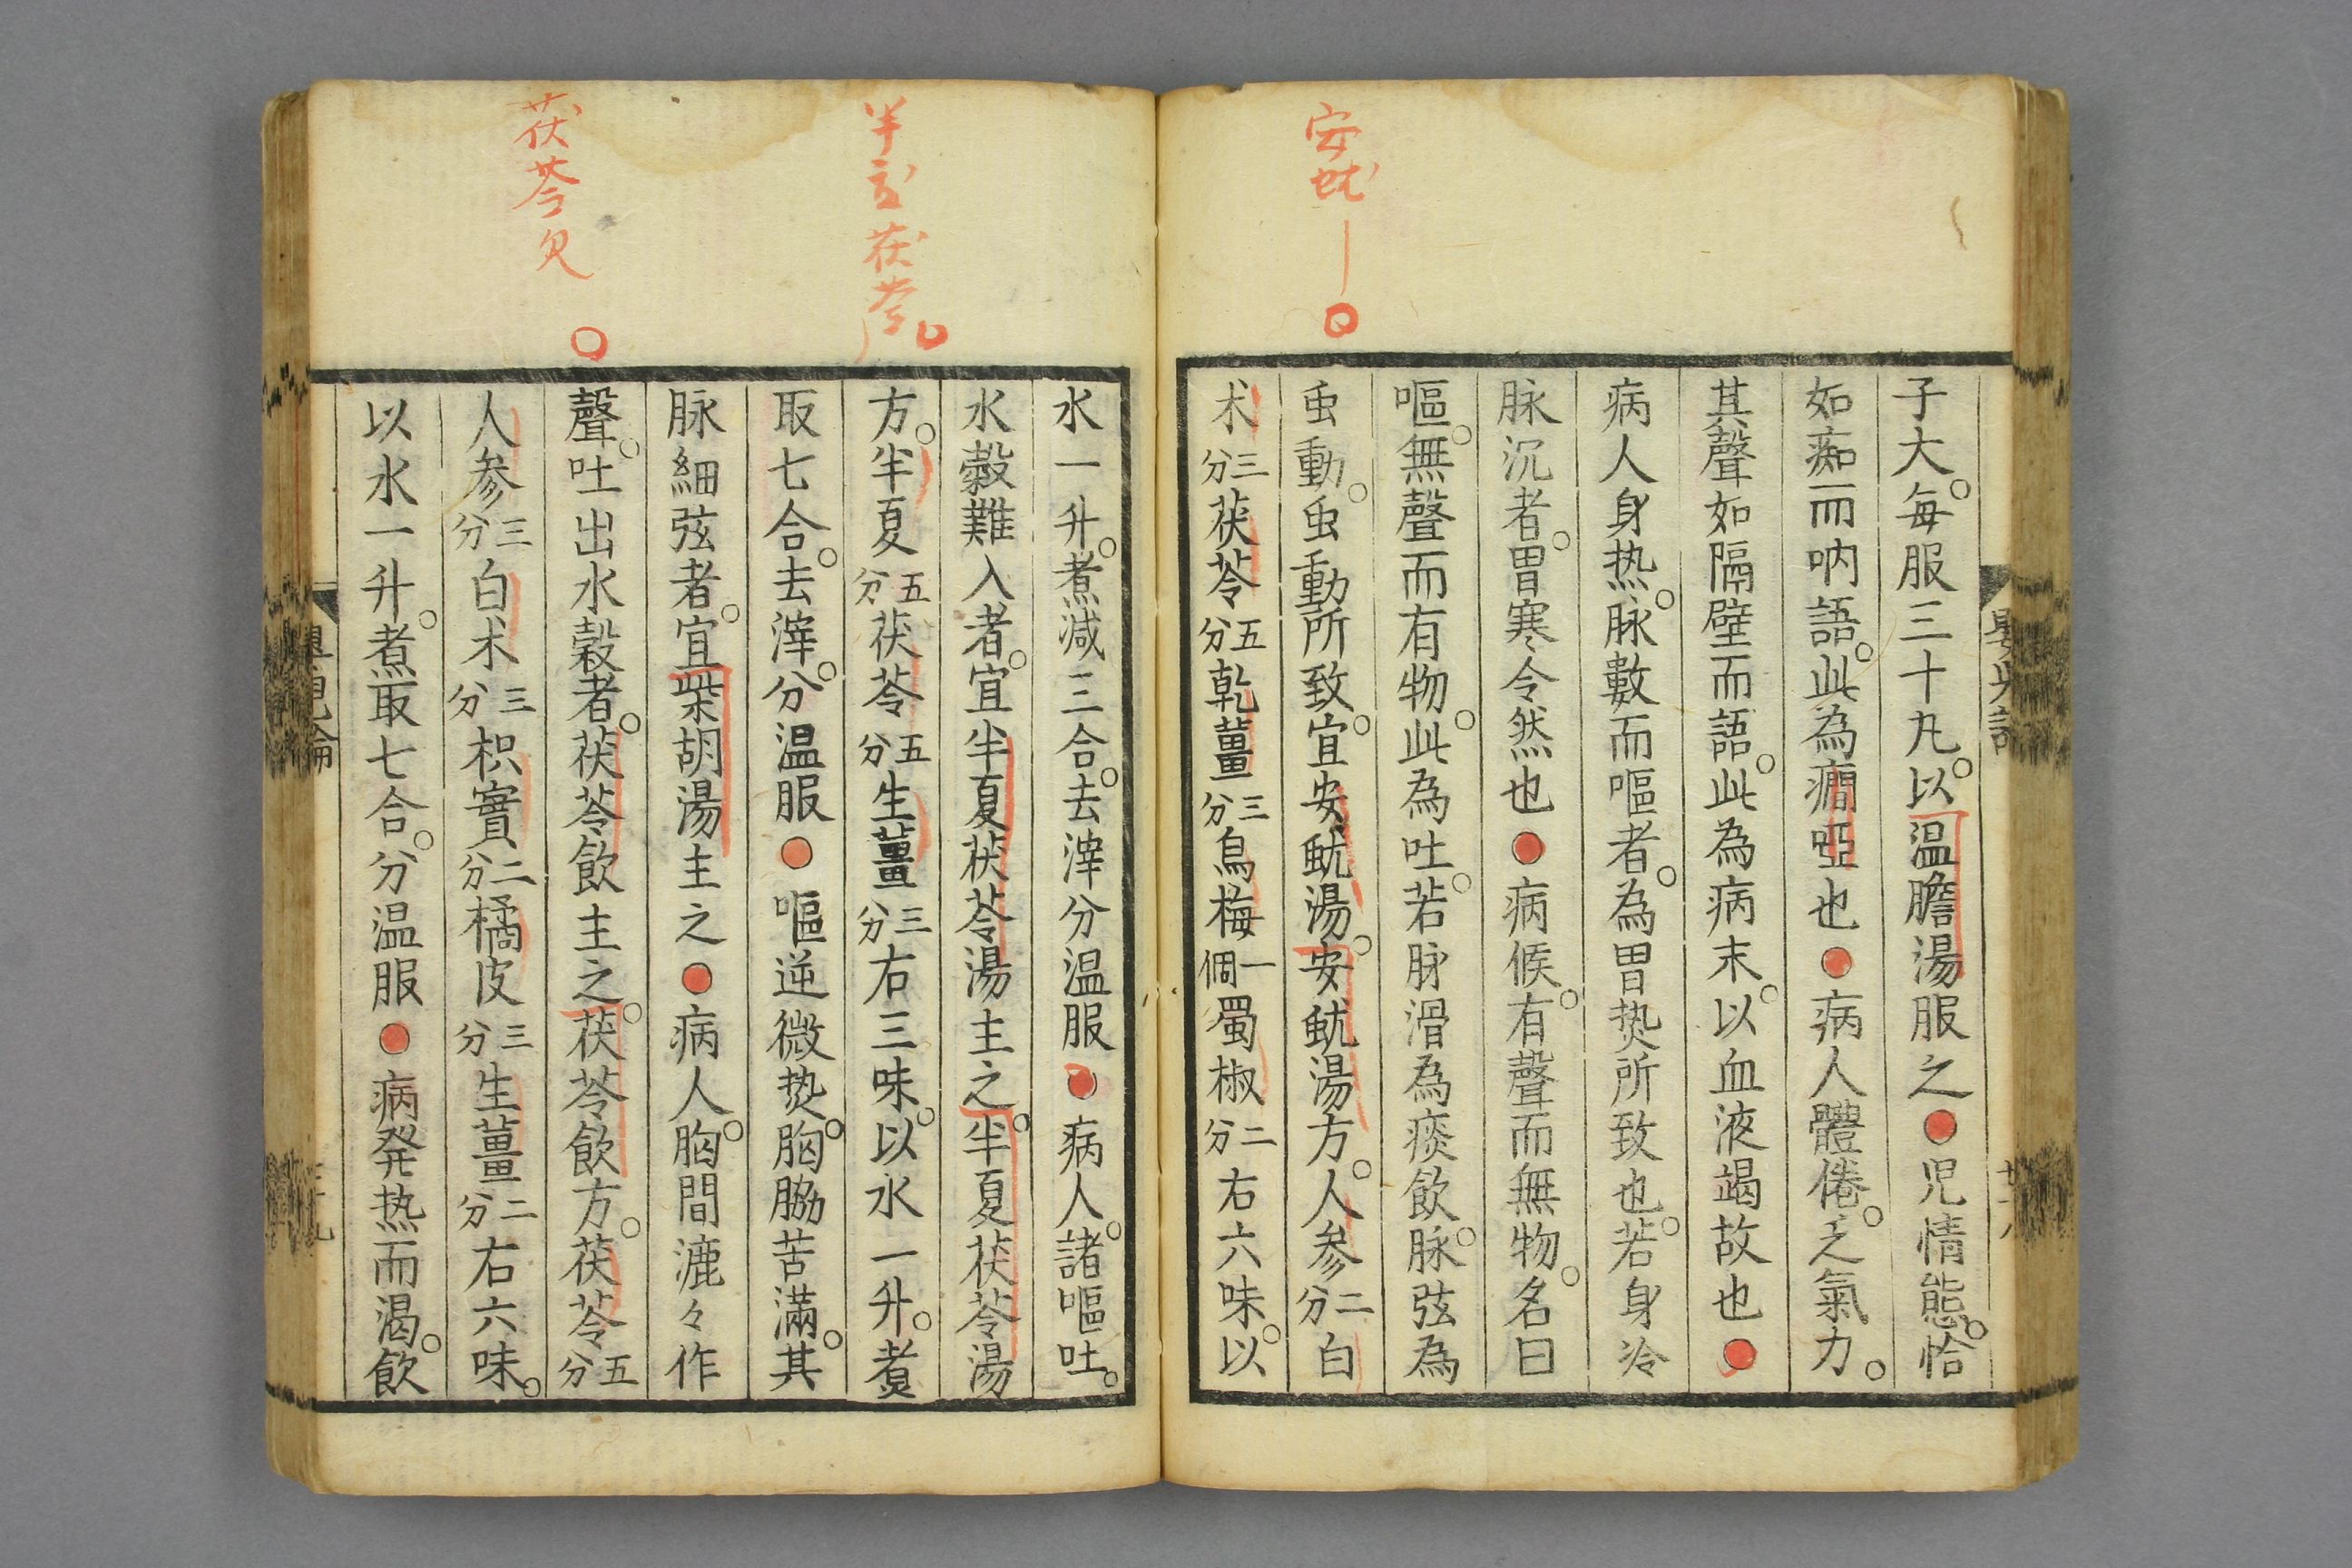 安蚘
子大。每服三十丸。以温膽湯服之●児情態。恰
如痴而吶語。此為癇啞也●病人體倦。乏氣力。
其聲如隔壁而語。此為病末。以血液竭故也●
病人身热。脉數而嘔者。為胃热所致也。若身冷
脉沉者。胃寒令然也●病候。有聲而無物。名曰
嘔。無聲而有物。此為吐。若脉滑為痰飲。脉弦為
虫動。虫動所致。宜安蚘湯。安蚘湯方。人参二分白
朮三分茯苓五分乾薑三分烏梅一個蜀椒二分右六味。以
半夏茯苓
茯苓
水一升。煮減三合。去滓分温服●病人。諸嘔吐。
水穀難入者。宜半夏茯苓湯主之。半夏茯苓湯
方。半夏五分茯苓五分生薑三分右三味。以水一升。煮
取七合。去滓。分温服●嘔逆微热。胸脇苦滿。其
脉細弦者。宜柴胡湯主之●病人。胸間漉々作
聲。吐出水穀者。茯苓飲主之。茯苓飲方。茯苓五分
人参三分白朮三分枳實二分橘皮三分生薑二分右六味。
以水一升。煮取七合。分温服●病発热而渴。飲